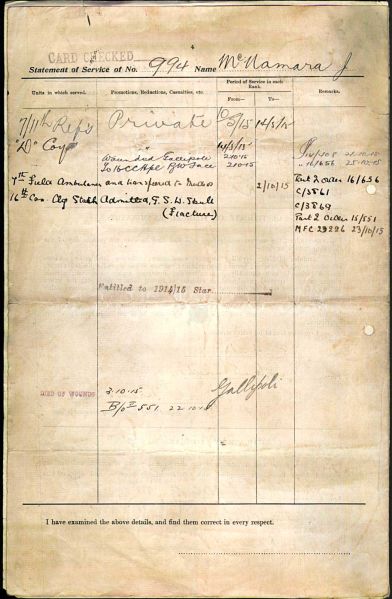 CARD CHECKED
4
Statement of Service of No. 994 Name McNamara J
Units in which served.
Promotions, Reductions, Casualties, etc.
Period of Service in each Rank.
From—
To—
Remarks.
7/11th Refs Private 10/3/15 14/3/15
"D" Coy 14/3/15 16/508 22-10-15
Wounded Gallipoli 2-10-15 16/656 25-10-15
To 16 CCHpl GW Face 2-10-15
7th Field Ambulance and transferred to 2/10/15 Part 2 Order 16/656
16th Cas Clg Statn Admitted, G.S.W. Skull C/3861
(Fracture) C/3869
Part 2 Order 15/551
MFC 29296 23/10/15
Entitled to 1914/15 Star
DIED OF WOUNDS 3-10-15 Gallipoli
551 22-10-1
I have examined the above details, and find them correct in every respect.